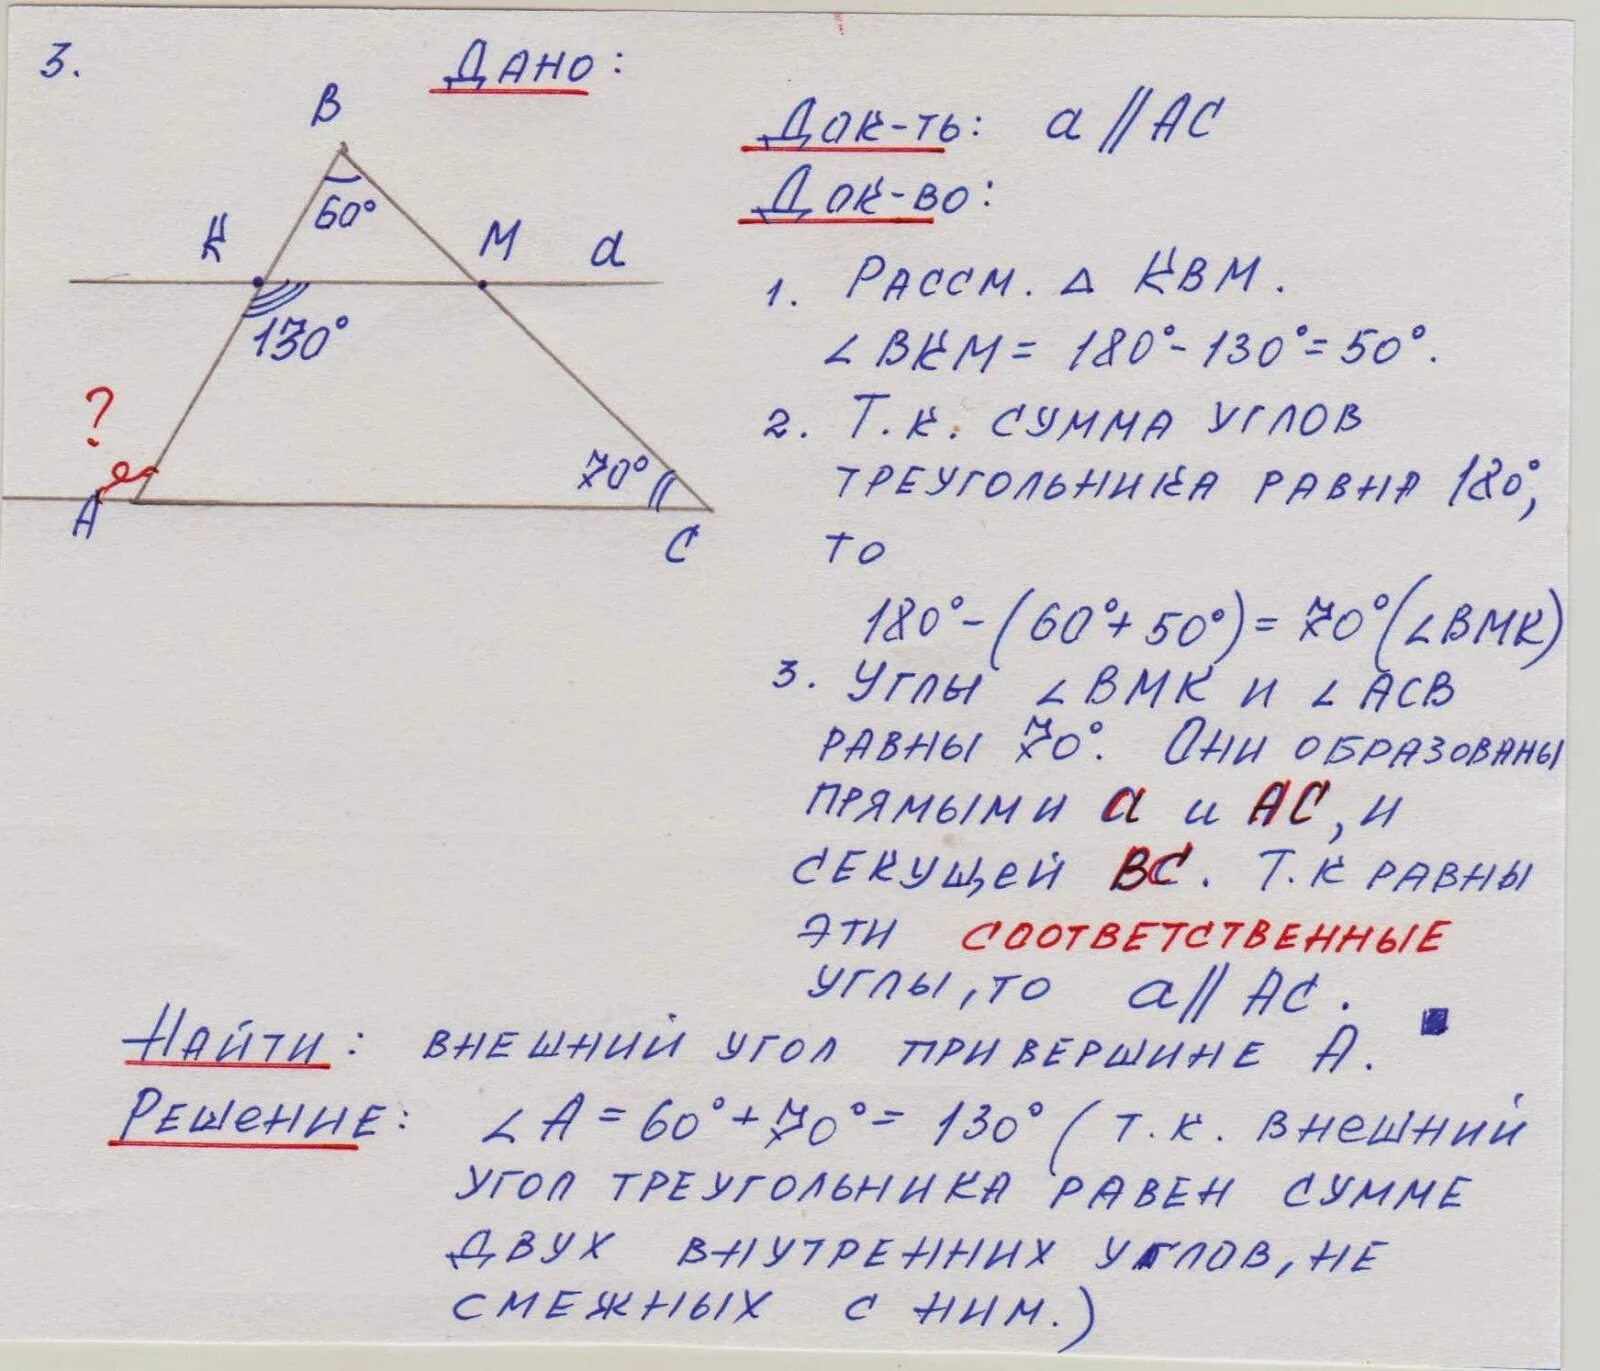 3.
Дано:
B
60°
К
М
a
130°
?
70°
A
C
Док-ть: a || AC
Док-во:
1. Рассм. △ КВМ.
∠ВКМ = 180° - 130° = 50°.
2. Т.к. сумма углов
треугольника равна 180°,
то
180° - (60° + 50°) = 70° (∠ВМК)
3. Углы ∠ВМК и ∠АСВ
равны 70°. Они образованы
прямыми a и АС, и
секущей ВС. Т.к равны
эти соответственные
углы, то a || АС.
Найти: внешний угол при вершине А.
Решение: ∠А = 60° + 70° = 130° (т.к. внешний
угол треугольника равен сумме
двух внутренних углов, не
смежных с ним.)